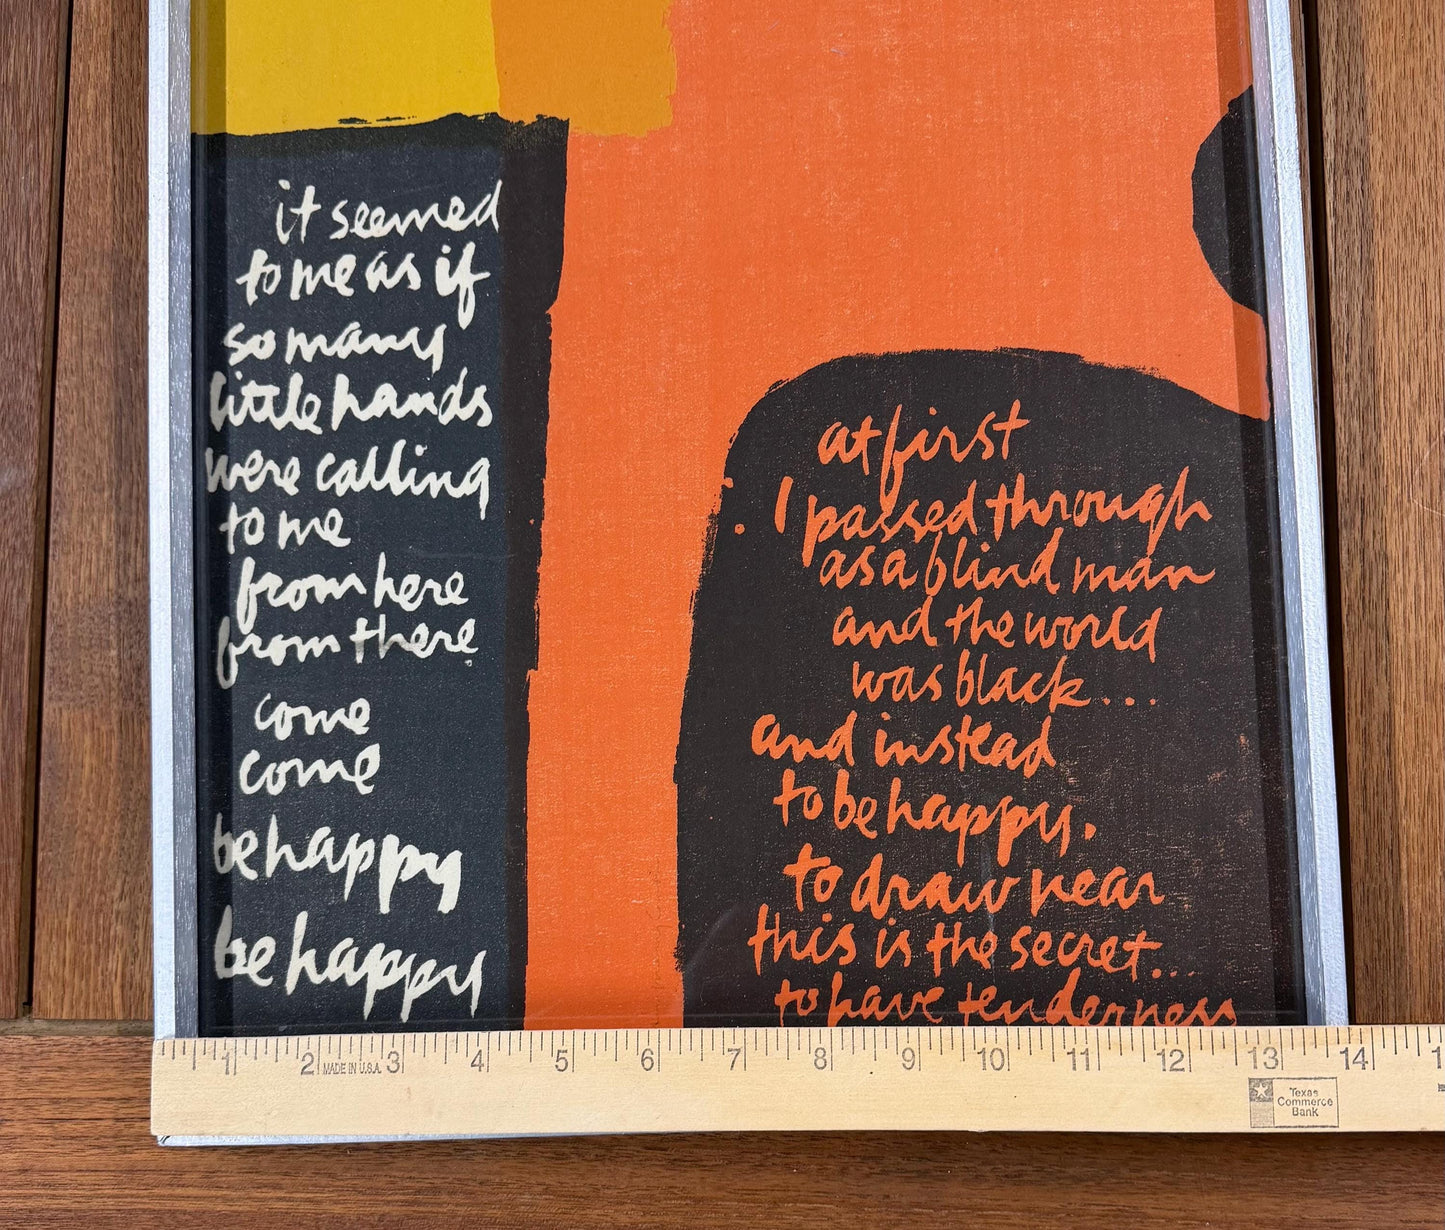 it seemed
to me as if
so many
little hands
were calling
to me
from here
from there
come
come
be happy
be happy
at first
I passed through
as a blind man
and the world
was black...
and instead
to be happy.
to draw near
this is the secret...
to have tenderness
1 2 MADE IN U.S.A. 3 4 5 6 7 8 9 10 11 12 13 14
Texas
Commerce
Bank